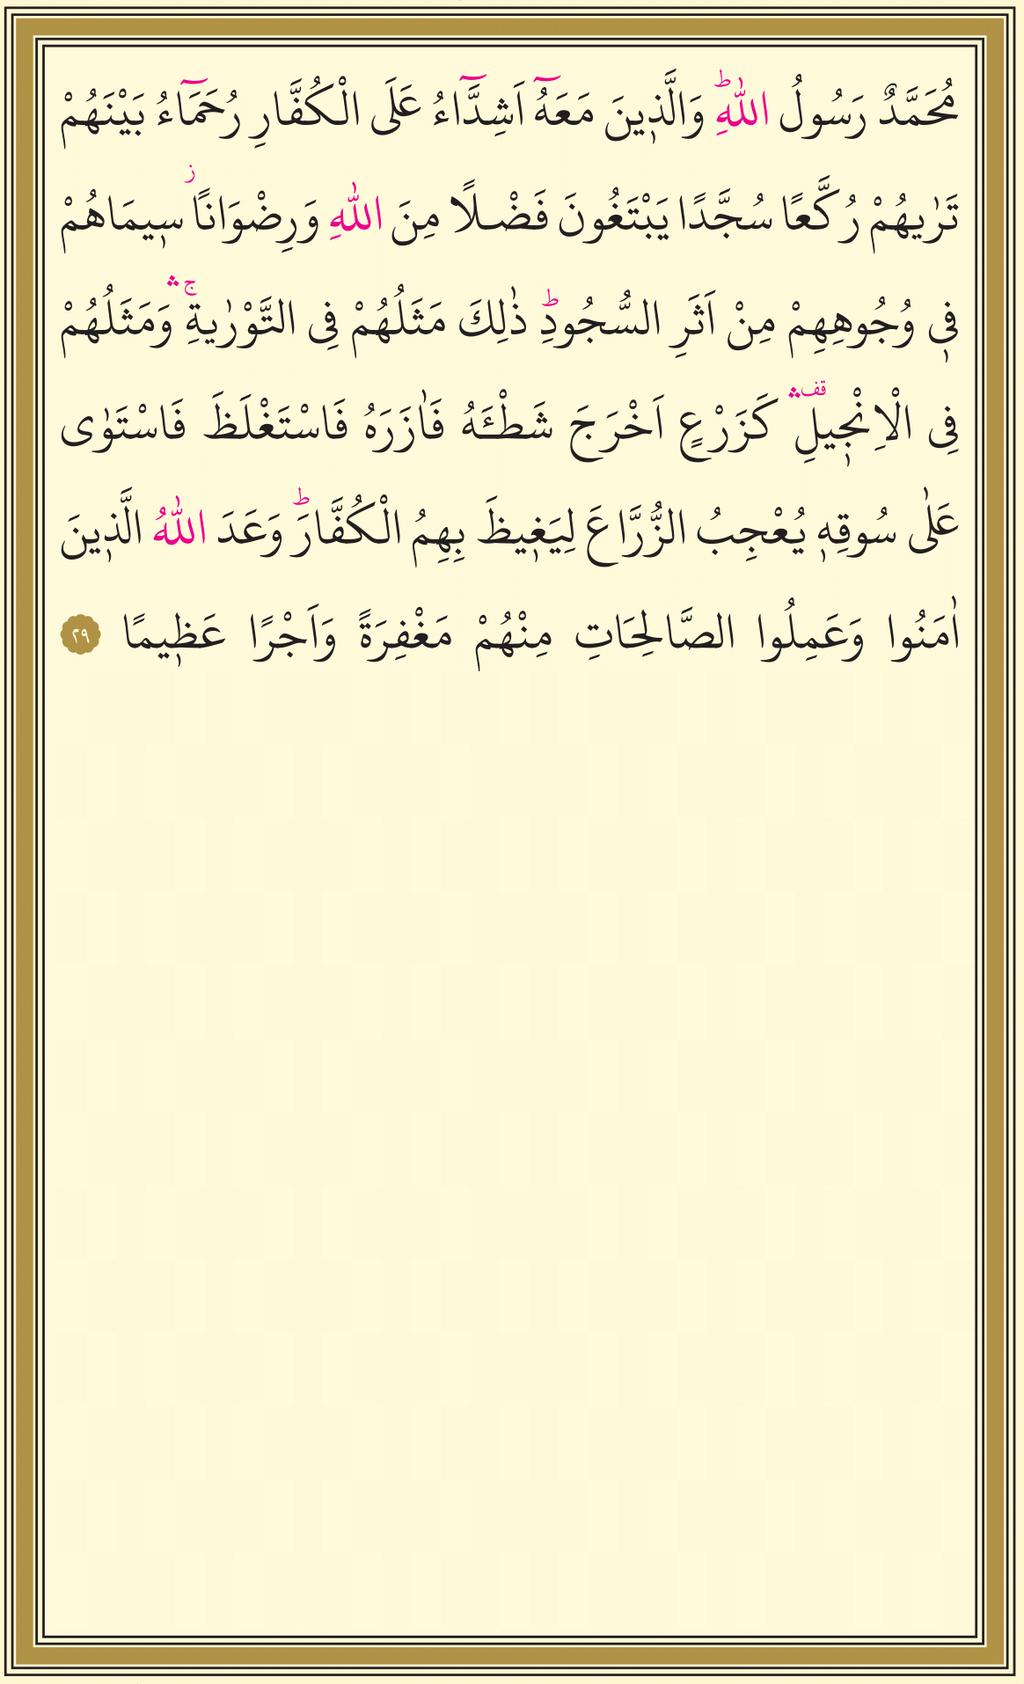 مُحَمَّدٌ رَسُولُ اللّٰهِۜ وَالَّذ۪ينَ مَعَهُٓ اَشِدَّٓاءُ عَلَى الْكُفَّارِ رُحَمَٓاءُ بَيْنَهُمْ
تَرٰيهُمْ رُكَّعًا سُجَّدًا يَبْتَغُونَ فَضْلًا مِنَ اللّٰهِ وَرِضْوَانًاۘ س۪يمَاهُمْ
ف۪ي وُجُوهِهِمْ مِنْ اَثَرِ السُّجُودِۜ ذٰلِكَ مَثَلُهُمْ فِي التَّوْرٰيةِۚۛ وَمَثَلُهُمْ
فِي الْاِنْج۪يلِ۠ۛ كَزَرْعٍ اَخْرَجَ شَطْـَٔهُ فَاٰزَرَهُ فَاسْتَغْلَظَ فَاسْتَوٰى
عَلٰى سُوقِه۪ يُعْجِبُ الزُّرَّاعَ لِيَغ۪يظَ بِهِمُ الْكُفَّارَۜ وَعَدَ اللّٰهُ الَّذ۪ينَ
اٰمَنُوا وَعَمِلُوا الصَّالِحَاتِ مِنْهُمْ مَغْفِرَةً وَاَجْرًا عَظ۪يمًا ﴿٢٩﴾